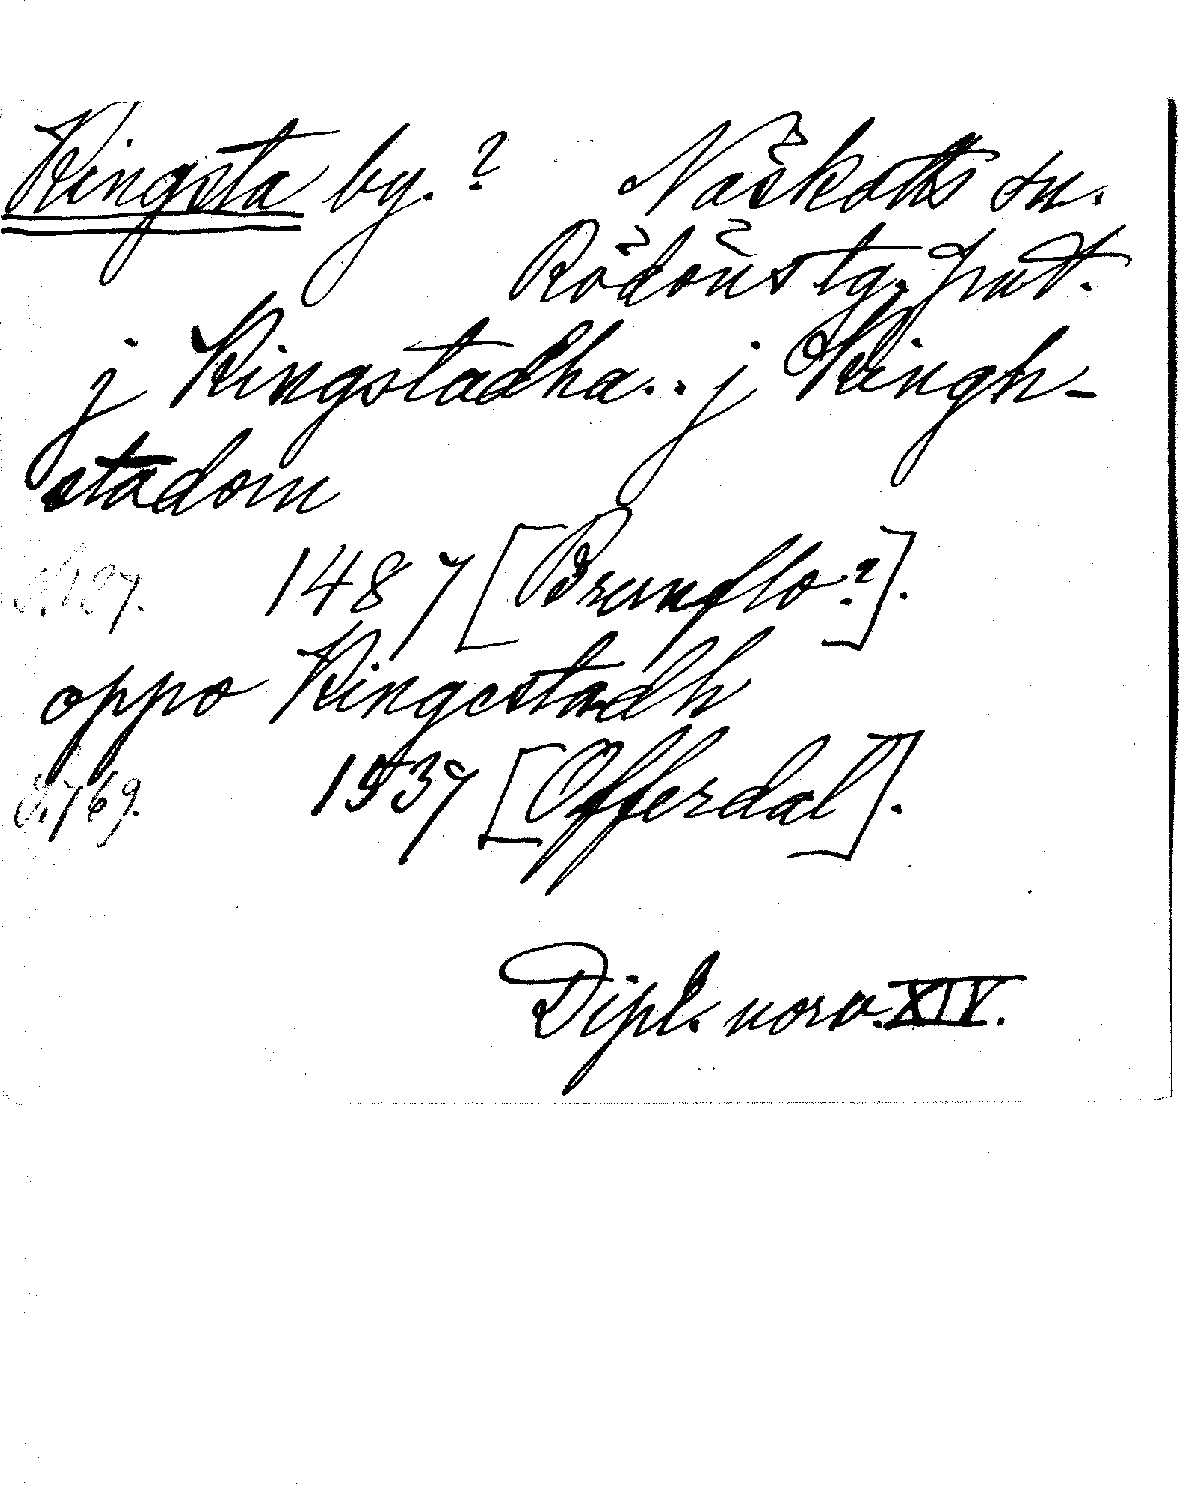 Kingsta by.? Näskotts sn.
Rödöns tg. Jmtl.
j Kingstadha.. j Kingh-
stadom
1487 [Brunflo?].
oppo Kingestadh
S. 769. 1537 [Offerdal].
Dipl. norv. XIV.